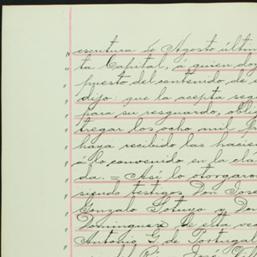 escritura de Agosto últim
ta Capital, á quien don
puesto del contenido de e
dijo: que la acepta seg
para su resguardo, obli
tregar los ocho mil
haya recibido las hacien
á lo convenido en la cla
da. = Así lo otorgaron
siendo testigos Don José
Gonzalo Sotuyo y Don
Dominguez de esta vec
Antolin G. de Portugal
José